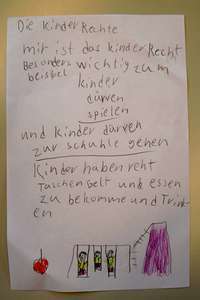 Die Kinder Rechte
mir ist das kinder Recht
Besonders wichtig zum
beisbel
kinder
dürven
spielen
und kinder dürven
zur schuhle gehen
Kinder haben reht
Taschengelt und essen
zu bekomme und Trink
en